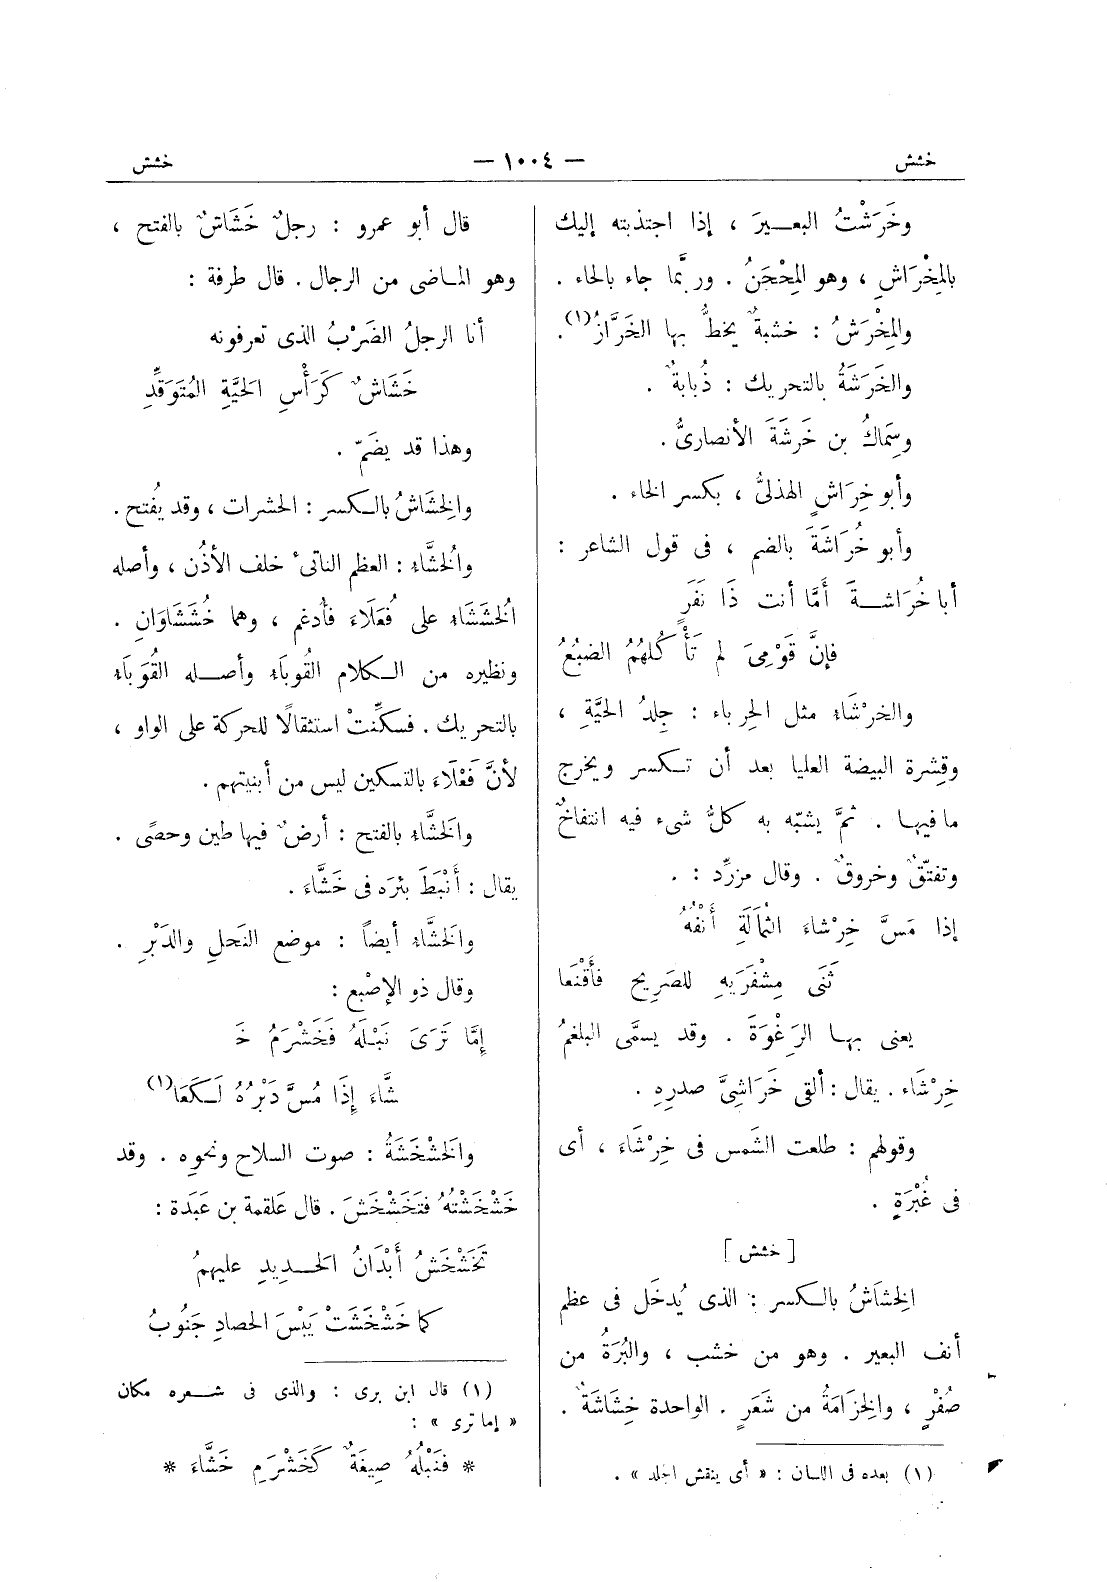 خشش
— ١٠٠٤ —
خشش
وخَرَشْتُ البعـير ، إذا اجتذبته إليك
بالمِخْرَاشِ ، وهو المِحْجَنُ . وربَّما جاء بالحاء .
والمِخْرَشُ : خشبةٌ يخطُّ بها الخَرَّازُ(١).
والخَرَشَةُ بالتحريك : ذُبابةٌ .
وسِمَاكُ بن خَرَشَةَ الأنصارىُّ .
وأبو خِرَاشٍ الهذلىُّ ، بكسر الخاء .
وأبو خُرَاشَةَ بالضم ، فى قول الشاعر :
أبا خُرَاشـةَ أَمَّا أنت ذَا نَفَرٍ
فإنَّ قَوْمِىَ لم تَأْكُلهُمُ الضبُعُ
والخرْشَاء مثل الحِرباء : جِلدُ الحَيَّةِ ،
وقِشرة البيضة العليا بعد أن تـكسر ويخرج
ما فيهـا . ثمَّ يشبّه به كلُّ شىء فيه انتفاخٌ
وتفتّقٌ وخروقٌ . وقال مزرِّد : .
إذا مَسَّ خِرْشاءَ الثُمَالَةِ أَنْفُهُ
ثَنَى مِشْفَرَيْهِ للصَرِيحِ فأَقْنَعَا
يعنى بهـا الرَغْوَةَ . وقد يسمَّى البلغمُ
خِرْشَاء . يقال : ألقى خَرَاشِىَّ صدرِهِ .
وقولهم : طلعت الشَمس فى خِرْشَاءَ ، أى
فى غُبْرَةٍ .
[ خشش ]
الخِشَاشُ بالـكسر : الذى يُدخَل فى عظم
أنف البعير . وهو من خشب ، والبُرَةُ من
صُفْرٍ ، والخِزَامَةُ من شَعَرٍ . الواحدة خِشَاشَةٌ .
(١) بعده فى اللسان : « أى ينقش الجلد » .
قال أبو عمرو : رجلٌ خَشَاشٌ بالفتح ،
وهو المـاضى من الرجال . قال طرفة :
أنا الرجلُ الضَرْبُ الذى تعرفونه
خَشَاشٌ كَرَأْسِ الحَيَّةِ المُتَوَقِّدِ
وهذا قد يضَمّ .
والخِشَاشُ بالـكسر : الحشرات ، وقد يُفتح .
والُخشَّاء : العظم الناتىْ خلف الأذُن ، وأصله
الُخشَشَاء على فُعَلَاءَ فأدغم ، وهما خُشَشَاوَانِ .
ونظيره من الـكلام القُوبَاء وأصـله القُوَبَاء
بالتحريك . فسكِّنتْ استثقالًا للحركة على الواو ،
لأنَّ فُعْلَاءَ بالتسكين ليس من أبنيتهم .
والخَشَّاء بالفتح : أرضٌ فيها طين وحصًى .
يقال : أَنْبَطَ بئرَه فى خَشَّاءَ .
والخَشَّاء أيضاً : موضع النَحلِ والدَبْرِ .
وقال ذو الإصْبع :
إمَّا تَرَىَ نَبْلَهُ فَخَشْرَمُ خَ
شَّاءَ إِذَا مُسَّ دَبْرُهُ لَـكَعَا(١)
والخَشْخَشَةُ : صوت السلاح ونحوِه . وقد
خَشْخَشْتُهُ فتَخَشْخَشَ . قال عَلقمة بن عَبَدة :
تَخَشْخَشُ أَبْدَانُ الحَـديدِ عليهمُ
كما خَشْخَشَتْ يَبْسَ الحصادِ جَنُوبُ
(١) قال ابن برى : والذى فى شـعره مكان
« إما ترى » :
* فنَبْلُهُ صِيغَةٌ كَخَشْرَمِ خَشَّاءَ *